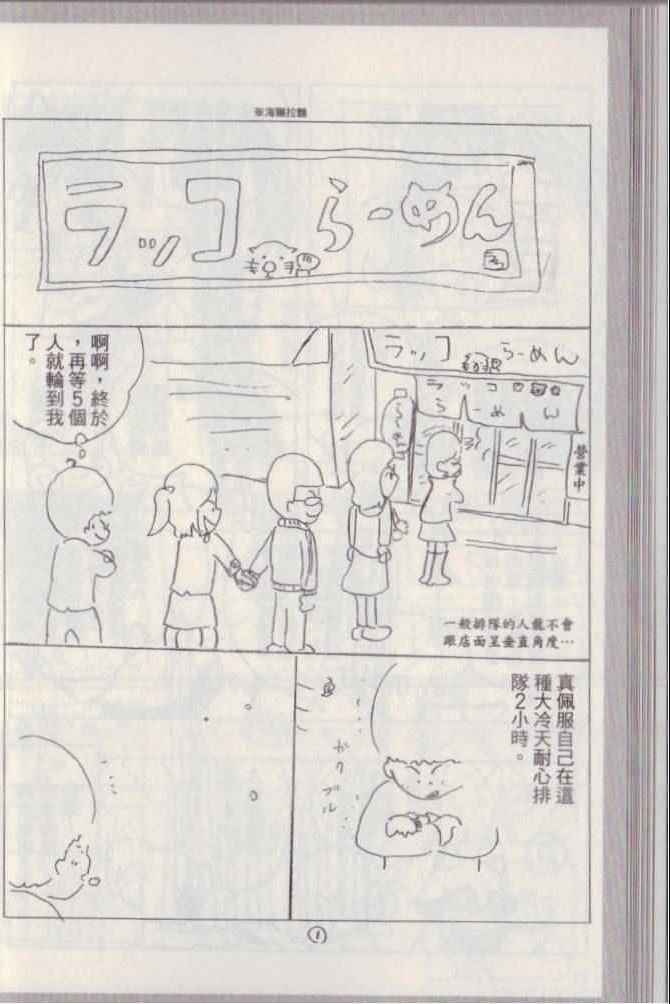 ※海獺拉麵
ラッコ らーめん
ラッコ らーめん
ラッコ
らーめん
營業中
啊啊，終於
，再等5個
人就輪到我
了。
一般排隊的人龍不會
跟店面呈垂直角度…
真佩服自己在這
種大冷天耐心排
隊2小時。
ガク
ブル
①